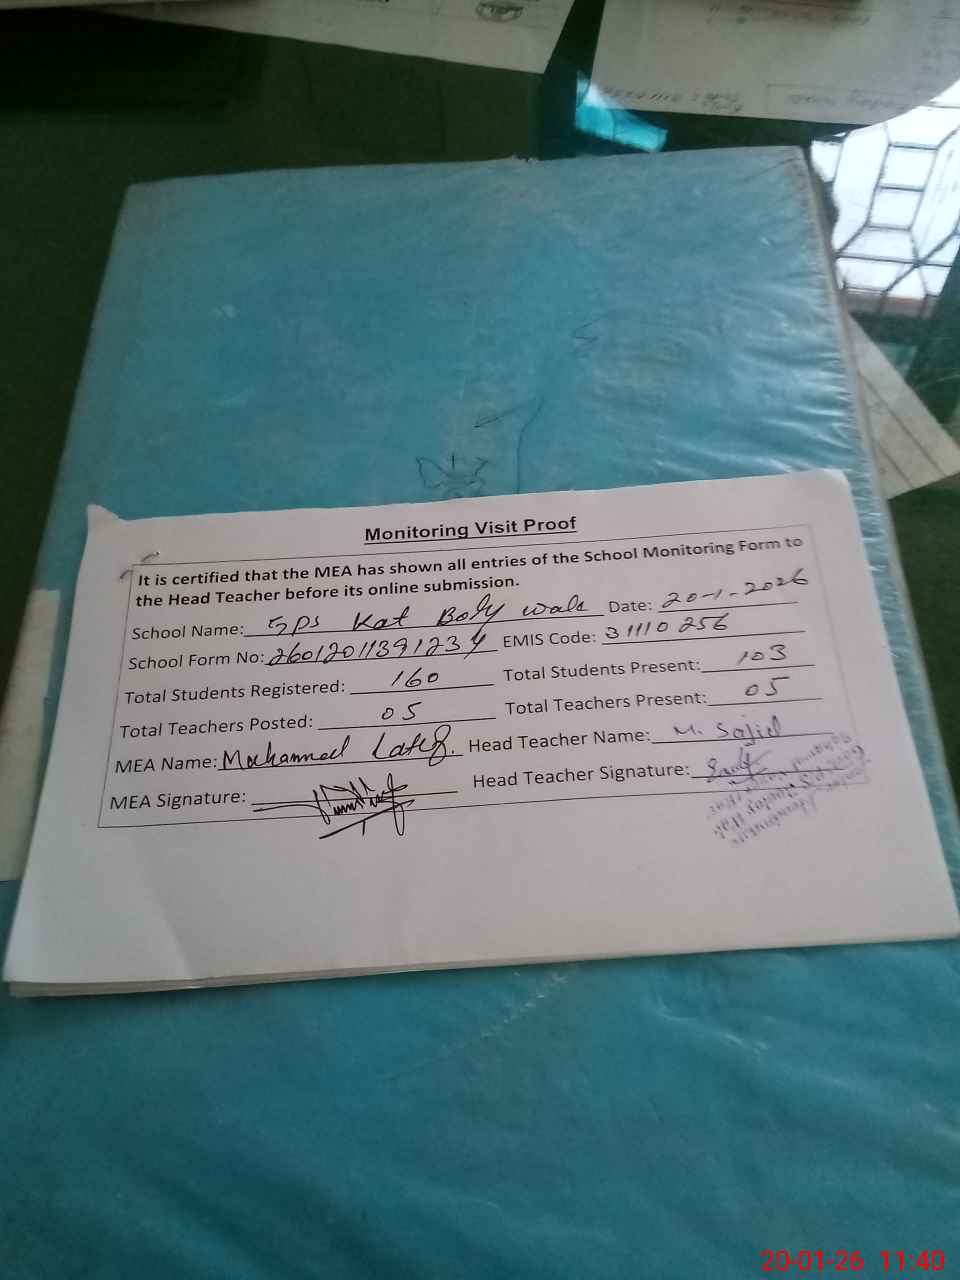 Monitoring Visit Proof
It is certified that the MEA has shown all entries of the School Monitoring Form to
the Head Teacher before its online submission.
School Name: GPS Kat Body wala Date: 20-1-2026
School Form No: 26012011391234 EMIS Code: 31110256
Total Students Registered: 160 Total Students Present: 103
Total Teachers Posted: 05 Total Teachers Present: 05
MEA Name: Mohammed Latef. Head Teacher Name: M. Sajid
MEA Signature: Head Teacher Signature:
20-01-26 11:40